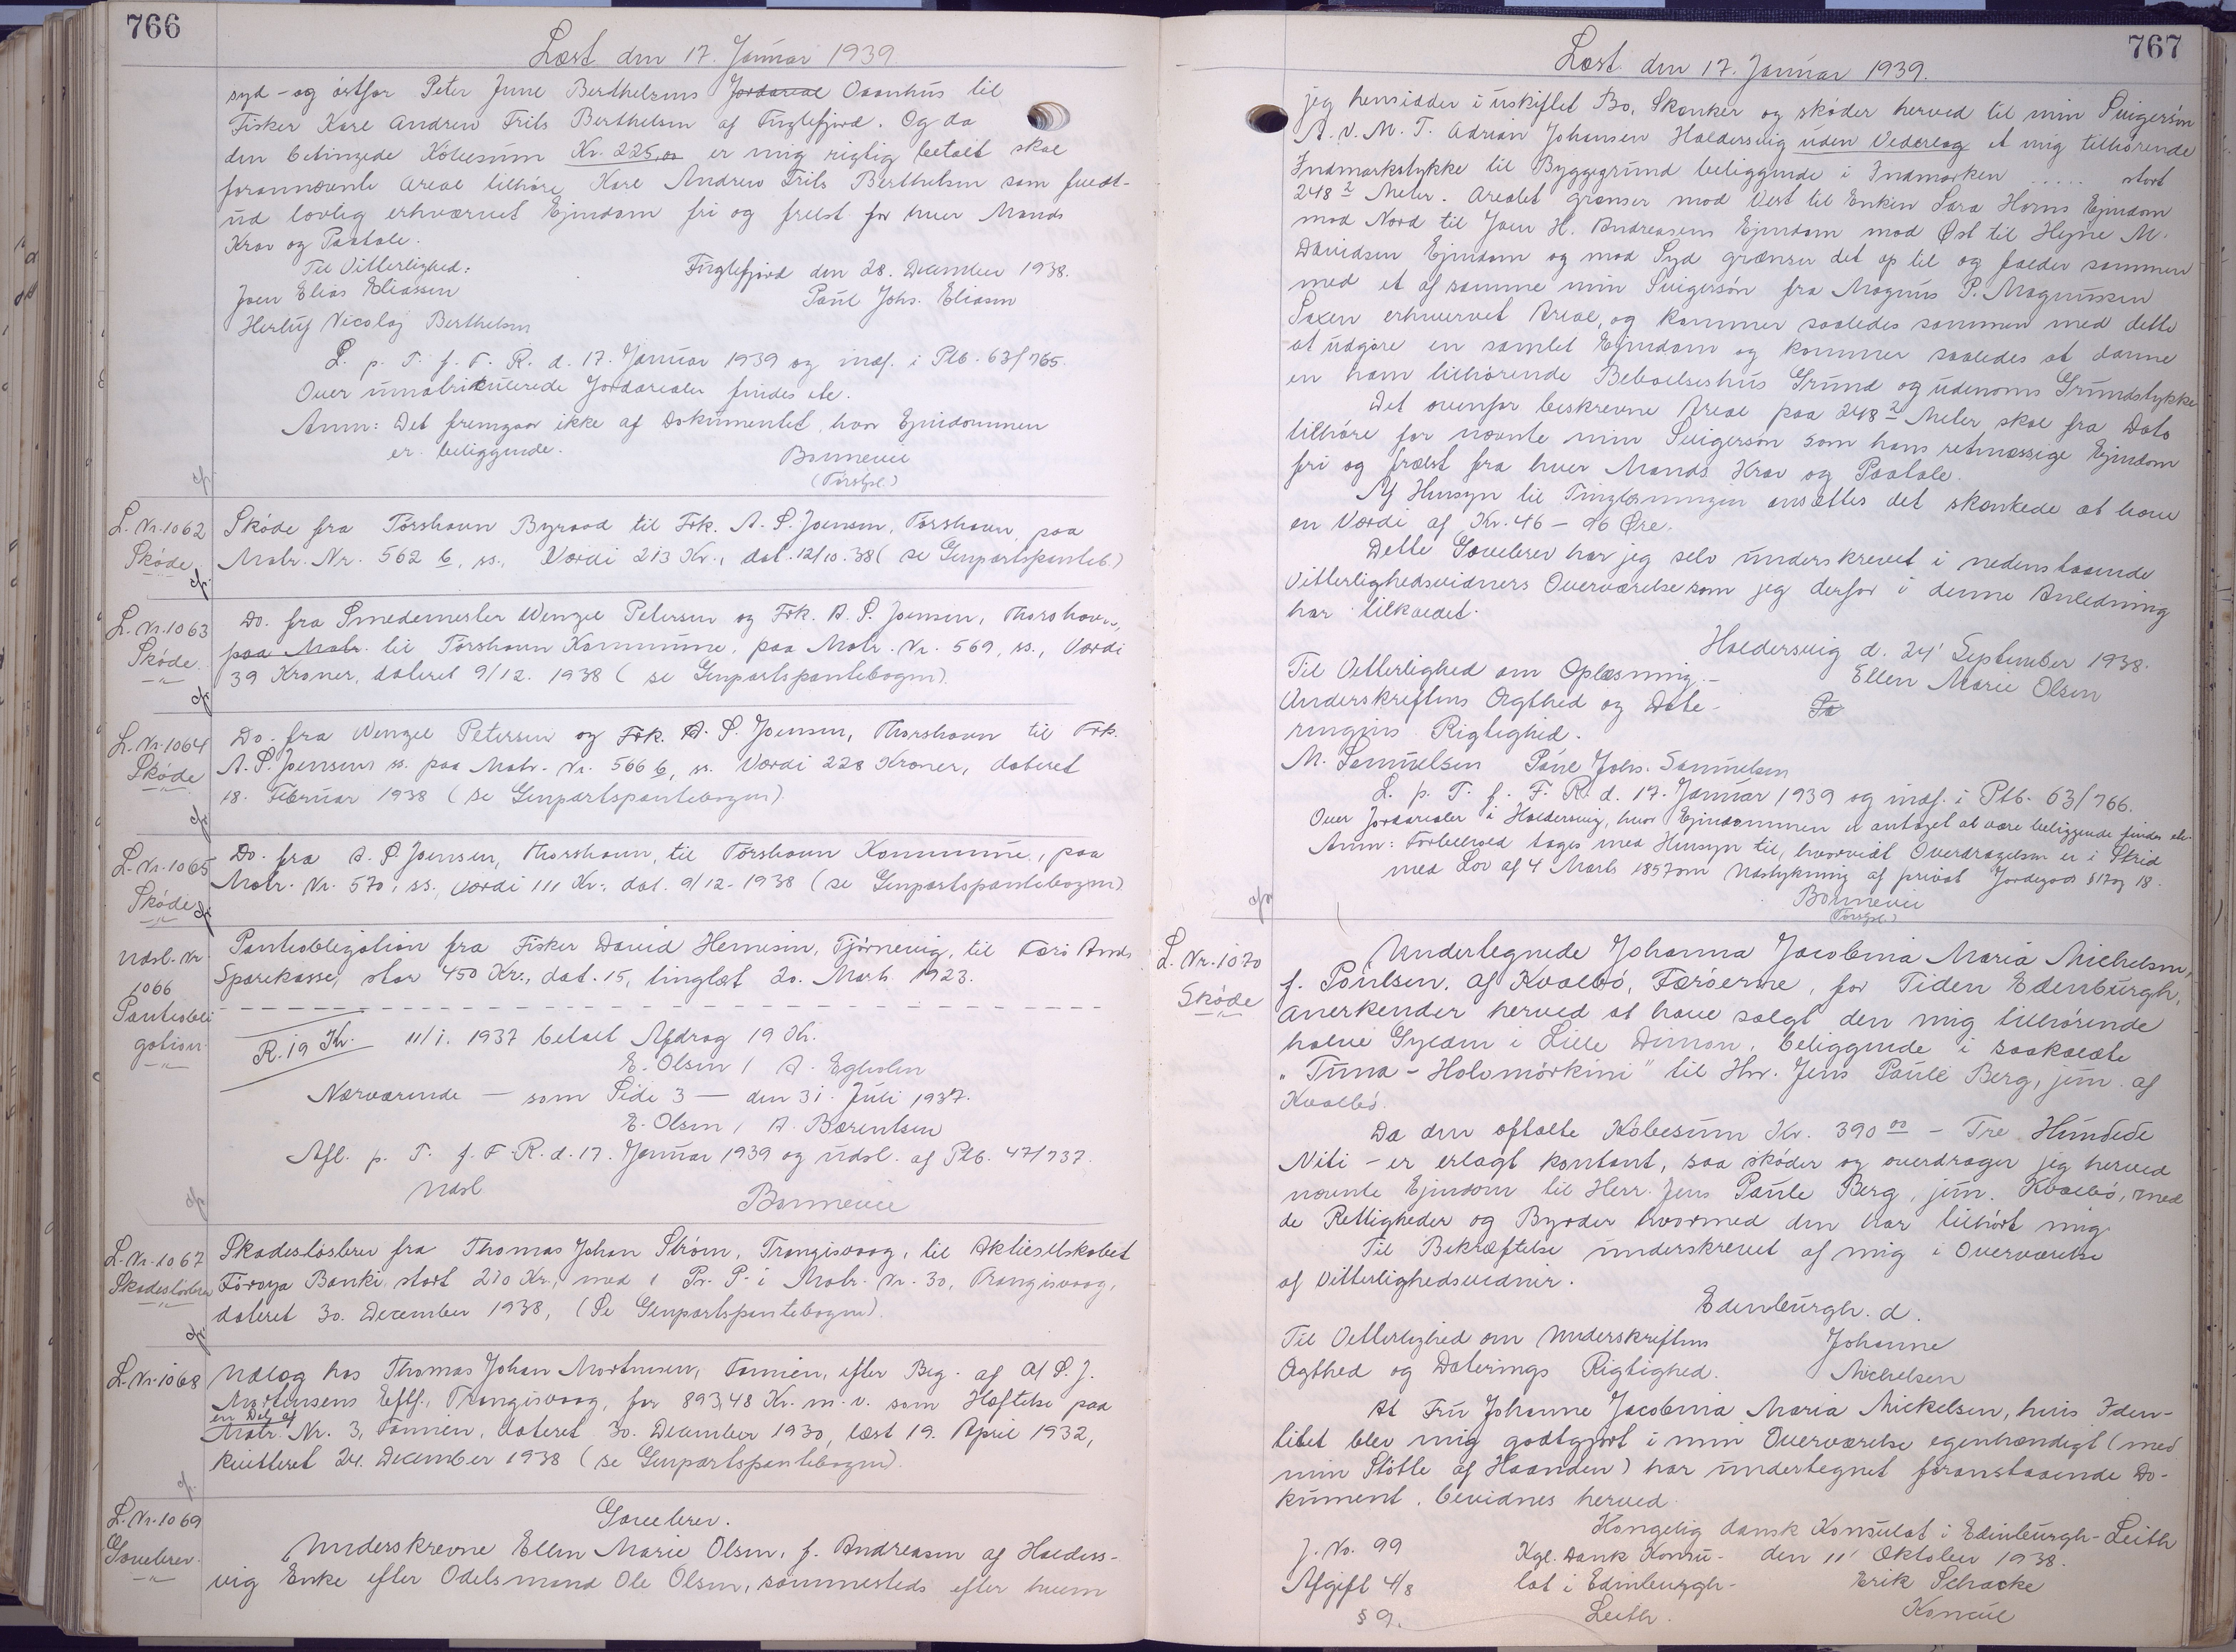 766
Læst den 17. Januar 1939
syd - og østfor Peter June Berthelsens Jordareal Oaanhus til
Fisker Karl Andrew Frits Berthelsen af Fuglefjord. Og da
den betingede Købesum Kr. 225,00 er mig rigtig betalt skal
forannævnte Areal tilhøre Karl Andrew Frits Berthelsen som fuldt-
ud lovlig erhvervet Ejendom fri og frelst for hver Mands
Krav og Paatale.
Til Vitterlighed: Fuglefjord den 28. December 1938.
Joen Elias Eliassen Paul Johs. Eliasen
Herluf Nicolaj Berthelsen
L. p. T. f. F. R. d. 17. Januar 1939 og indf. i Ptb. 63/765.
Over umatrikulerede Jordarealer findes ete.
Anm: Det fremgaar ikke af Dokumentet, hvor Ejendommen
er beliggende. Bonnevie
(Torshl.)
L. Nr. 1062
Skøde
Skøde fra Torshavn Byraad til Frk. A. S. Joensen, Torshavn, paa
Matr. Nr. 562 b, ss., Værdi 213 Kr., dat. 12/10.38 (se Genpartspanteb.)
L. Nr. 1063
Skøde.
Do. fra Smedemester Wenzel Petersen og Frk. A. S. Joensen, Thorshavn,
paa Matr. til Torshavn Kommune, paa Matr. Nr. 569, ss., Værdi
39 Kroner, dateret 9/12. 1938 (se Genpartspantebogen).
L. Nr. 1064
Skøde
Do. fra Wenzel Petersen og Frk. A. S. Joensen, Thorshavn til Frk.
A. S. Joensen ss. paa Matr. Nr. 566 b, ss. Værdi 228 Kroner, dateret
18. Februar 1938 (se Genpartspantebogen)
L. Nr. 1065
Skøde
Do. fra A. S. Joensen, Thorshavn, til Torshavn Kommune, paa
Matr. Nr. 570, ss., Værdi 111 Kr., dat. 9/12-1938 (se Genpartspantebogen)
Udsl. Nr.
1066
Panteobli
gation
Panteobligation fra Fisker David Hennesin, Tjørnevig, til Færø Amts
Sparekasse, stor 450 Kr., dat. 15, tinglæst 20. Marts 1923.
R. 19 Kr. 11/1. 1937 betalt Afdrag 19 Kr.
E. Olsen / A. Egholm
Nærværende — som Side 3 — den 31. Juli 1937.
E. Olsen / A. Bærentsen
Afl. p. T. f. F. R. d. 17. Januar 1939 og udsl. af Ptb. 47/737.
Udsl Bonnevie
L. Nr. 1067
Skadesløsbrev
Skadesløsbrev fra Thomas Johan Strøm, Trangisvaag, til Aktieselskabet
Føroya Banki, stort 270 Kr., med 1 Pr. P. i Matr. Nr. 30, Trangisvaag,
dateret 30. December 1938, (Se Genpartspantebogen).
L. Nr. 1068
Udlæg hos Thomas Johan Mortensen, Famien, efter Beg. af A/S. J.
Mortensens Eftf., Trangisvaag, for 893,48 Kr. m. v. som Hæftelse paa
en Del af
Matr. Nr. 3, Famien, dateret 30. December 1930, læst 19. April 1932,
kvitteret 24. December 1938 (se Genpartspantebogen).
L. Nr. 1069
Gavebrev.
Gavebrev.
Underskrevne Ellen Marie Olsen, f. Andreasen af Halders-
vig Enke efter Odelsmand Ole Olsen, sammesteds efter hvem
767
Læst den 17. Januar 1939.
jeg hensidder i uskiftet Bo, skænker og skøder herved til min Svigersøn
A. V. M. T. Adrian Johansen Haldersvig uden Vederlag et mig tilhørende
Indmarkstykke til Byggegrund beliggende i Indmarken ..... stort
248 2 Meter. Arealet grænser mod Vest til Enken Sara Horns Ejendom
mod Nord til Joen H. Andreasens Ejendom mod Øst til Hejne M.
Davidsen Ejendom og mod Syd grænser det op til og falder sammen
med et af samme min Svigersøn fra Magnus P. Magnussen
Saxen erhvervet Areal, og kommer saaledes sammen med dette
at udgøre en samlet Ejendom og kommer saaledes at danne
en ham tilhørende Beboelseshus Grund og udenoms Grundstykke
Det ovenfor beskrevne Areal paa 248 2 Meter skal fra Dato
tilhøre for nævnte min Svigersøn som hans retmæssige Ejendom
fri og frælst fra hver Mands Krav og Paatale.
Af Hensyn til Tinglæsningen ansættes det skænkede at have
en Værdi af Kr. 46 - 96 Øre.
Dette Gavebrev har jeg selv underskrevet i nedenstaaende
Vitterlighedsvidners Overværelse som jeg derfor i denne Anledning
har tilkaldet.
Haldersvig d. 24' September 1938.
Til Vetterlighed om Oplæsning - Ellen Marie Olsen
Underskriftens Ægthed og Date-
ringens Rigtighed.
M. Samuelsen Paul Johs. Samuelsen
L. p. T. f. F. R. d. 17. Januar 1939 og indf. i Ptb. 63/766.
Over Jordarealer i Haldersvig, hvor Ejendommen er antaget at være beliggende findes ete.
Anm: Forbehold tages med Hensyn til, hvorvidt Overdragelsen er i Strid
med Lov af 4 Marts 1857 om Udstykning af privat Jordegods § 17 og 18.
Bonnevie
(Torshl.)
L. Nr. 1070
Skøde
Undertegnede Johanna Jacobina Maria Michelsen,
f. Poulsen, af Kvalbø, Færøerne, for Tiden Edenburgh,
anerkender herved at have solgt den mig tilhørende
halve Gylden i Lille Dimon, beliggende i saakaldte
"Tuna - Holomørkini" til Hr. Jens Paule Berg, jun. af
Kvalbø.
Da den aftalte Købesum Kr. 390 00 - Tre Hundede
Niti - er erlagt kontant, saa skøder og overdrager jeg herved
nævnte Ejendom til Herr. Jens Paule Berg, jun. Kvalbø, med
de Rettigheder og Byrder hvormed den har tilhørt mig.
Til Bekræftelse underskrevet af mig i Overværelse
af Vitterlighedsvidner.
Edenburgh. d.
Til Vetterlighed om Underskriftens Johanne
Ægthed og Daterings Rigtighed. Michelsen
At Fru Johanne Jacobina Maria Mickelsen, hvis Iden-
titet blev mig godtgjort i min Overværelse egenhændigt (med
min Støtte af Haanden) har undertegnet foranstaaende Do-
kument, bevidnes herved
Kongelig dansk Konsulat i Edinburgh-Leith
J. No. 99 Kgl. Dansk Konsu- den 11' Oktober 1938.
Afgift 4/8 lat i Edinburgh- Erik Schacke
§ 9. Leith. Konsul